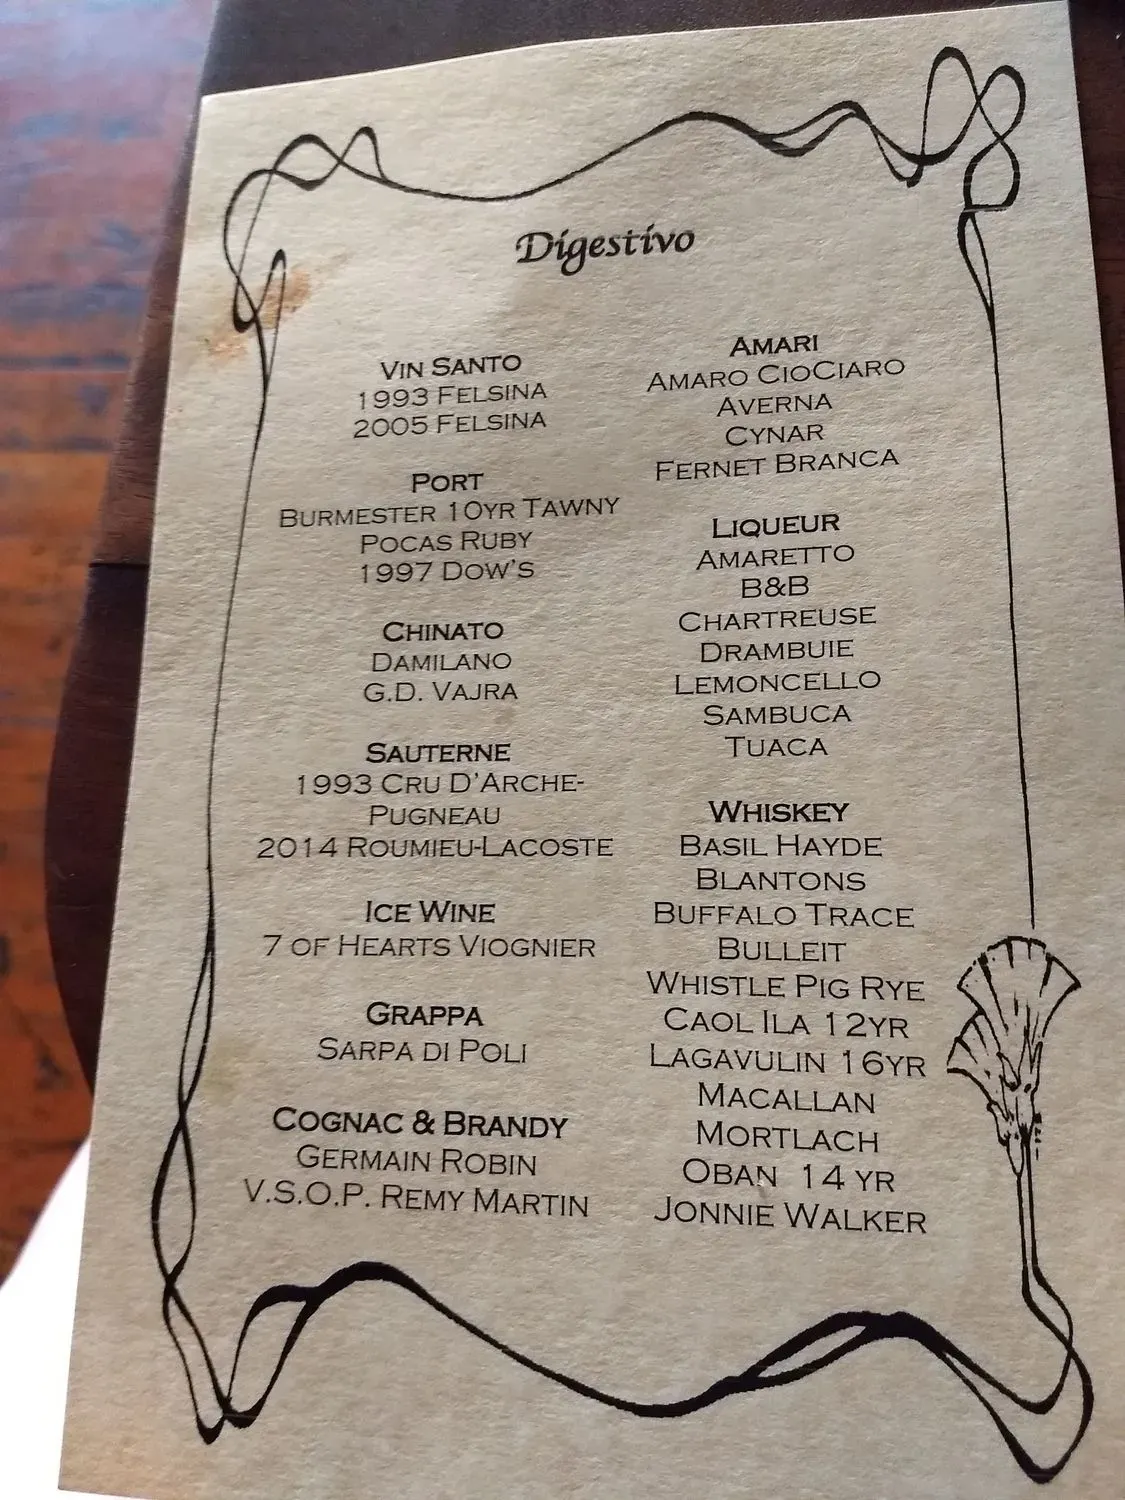 Digestivo
Vin Santo
1993 Felsina
2005 Felsina
Port
Burmester 10yr Tawny
Pocas Ruby
1997 Dow's
Chinato
Damilano
G.D. Vajra
Sauterne
1993 Cru D'Arche-
Pugneau
2014 Roumieu-Lacoste
Ice Wine
7 of Hearts Viognier
Grappa
Sarpa di Poli
Cognac & Brandy
Germain Robin
V.S.O.P. Remy Martin
Amari
Amaro CioCiaro
Averna
Cynar
Fernet Branca
Liqueur
Amaretto
B&B
Chartreuse
Drambuie
Lemoncello
Sambuca
Tuaca
Whiskey
Basil Hayde
Blantons
Buffalo Trace
Bulleit
Whistle Pig Rye
Caol Ila 12yr
Lagavulin 16yr
Macallan
Mortlach
Oban 14 yr
Jonnie Walker